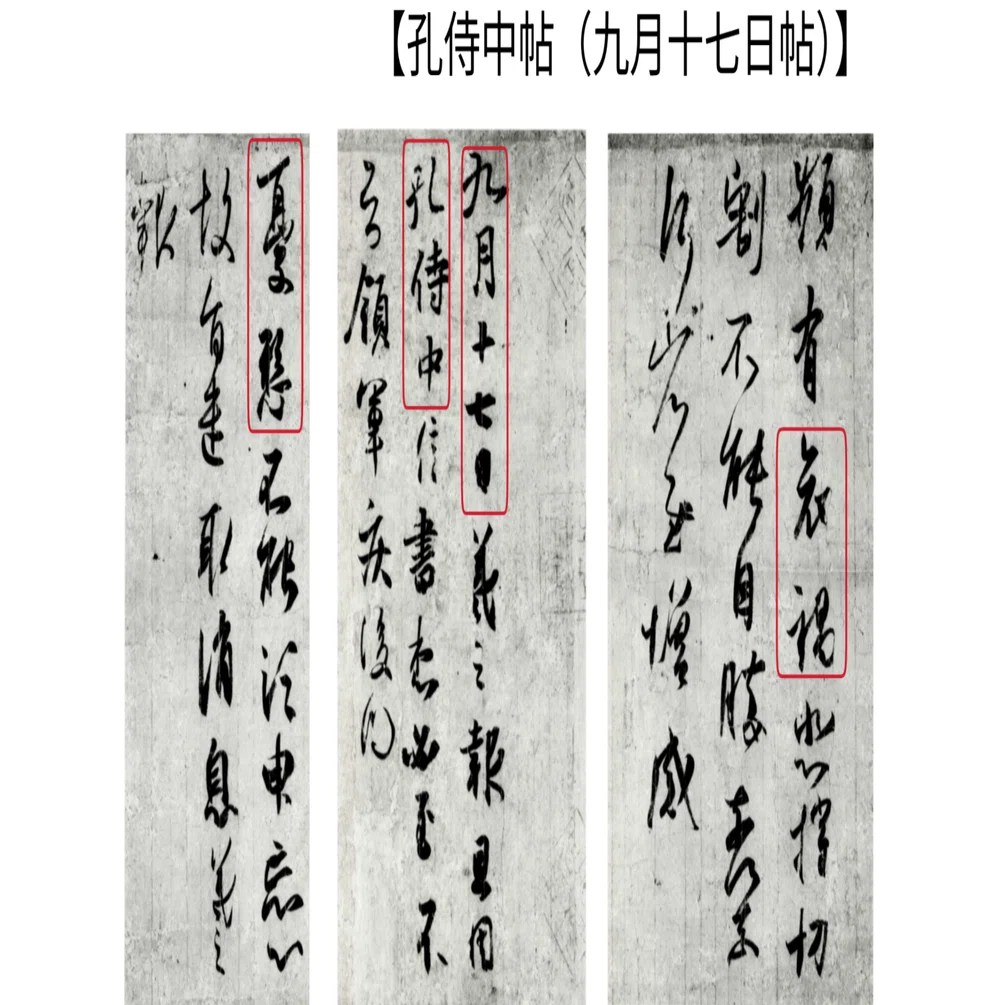 【孔侍中帖（九月十七日帖）】
頻有哀禍悲摧切
割不能自勝奈何奈
何省慰增感
九月十七日羲之報且因
孔侍中信書想必至不
知領軍疾後問
憂懸不能須臾忘心
故旨遣取消息羲之
報